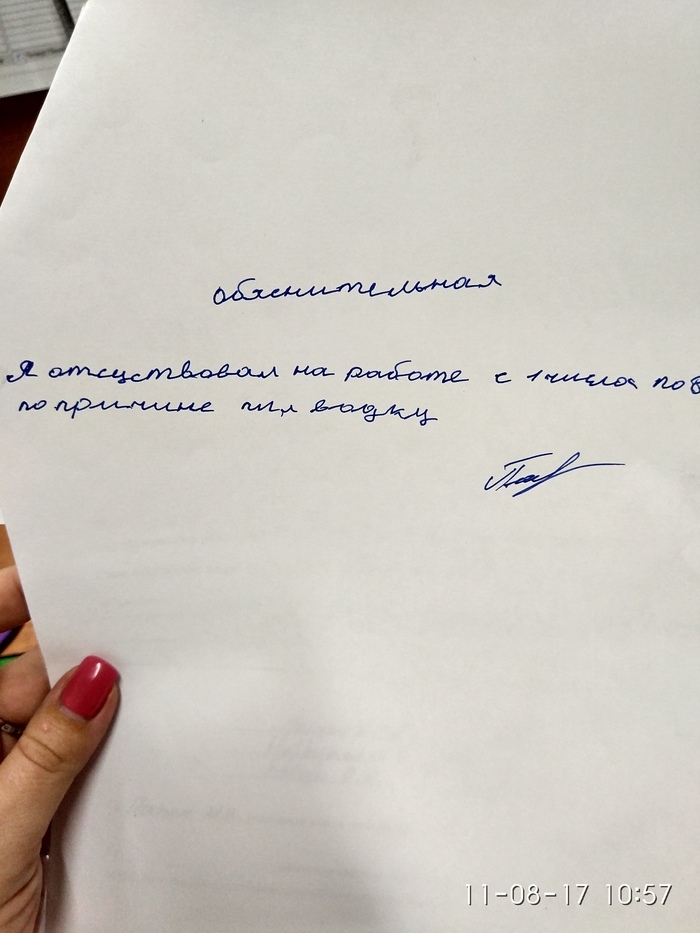 обяснительная
Я отсуствовал на работе с 1 числа по 8
по причине пил водку
11-08-17 10:57